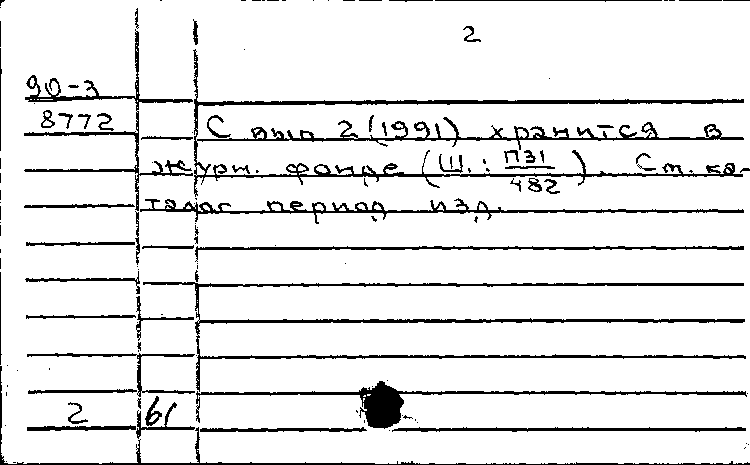 2
90-3
8772
С вып 2 (1991) хранится в
журн. фонде (Ш.: П31/482). См. ка-
талог период изд.
2 61